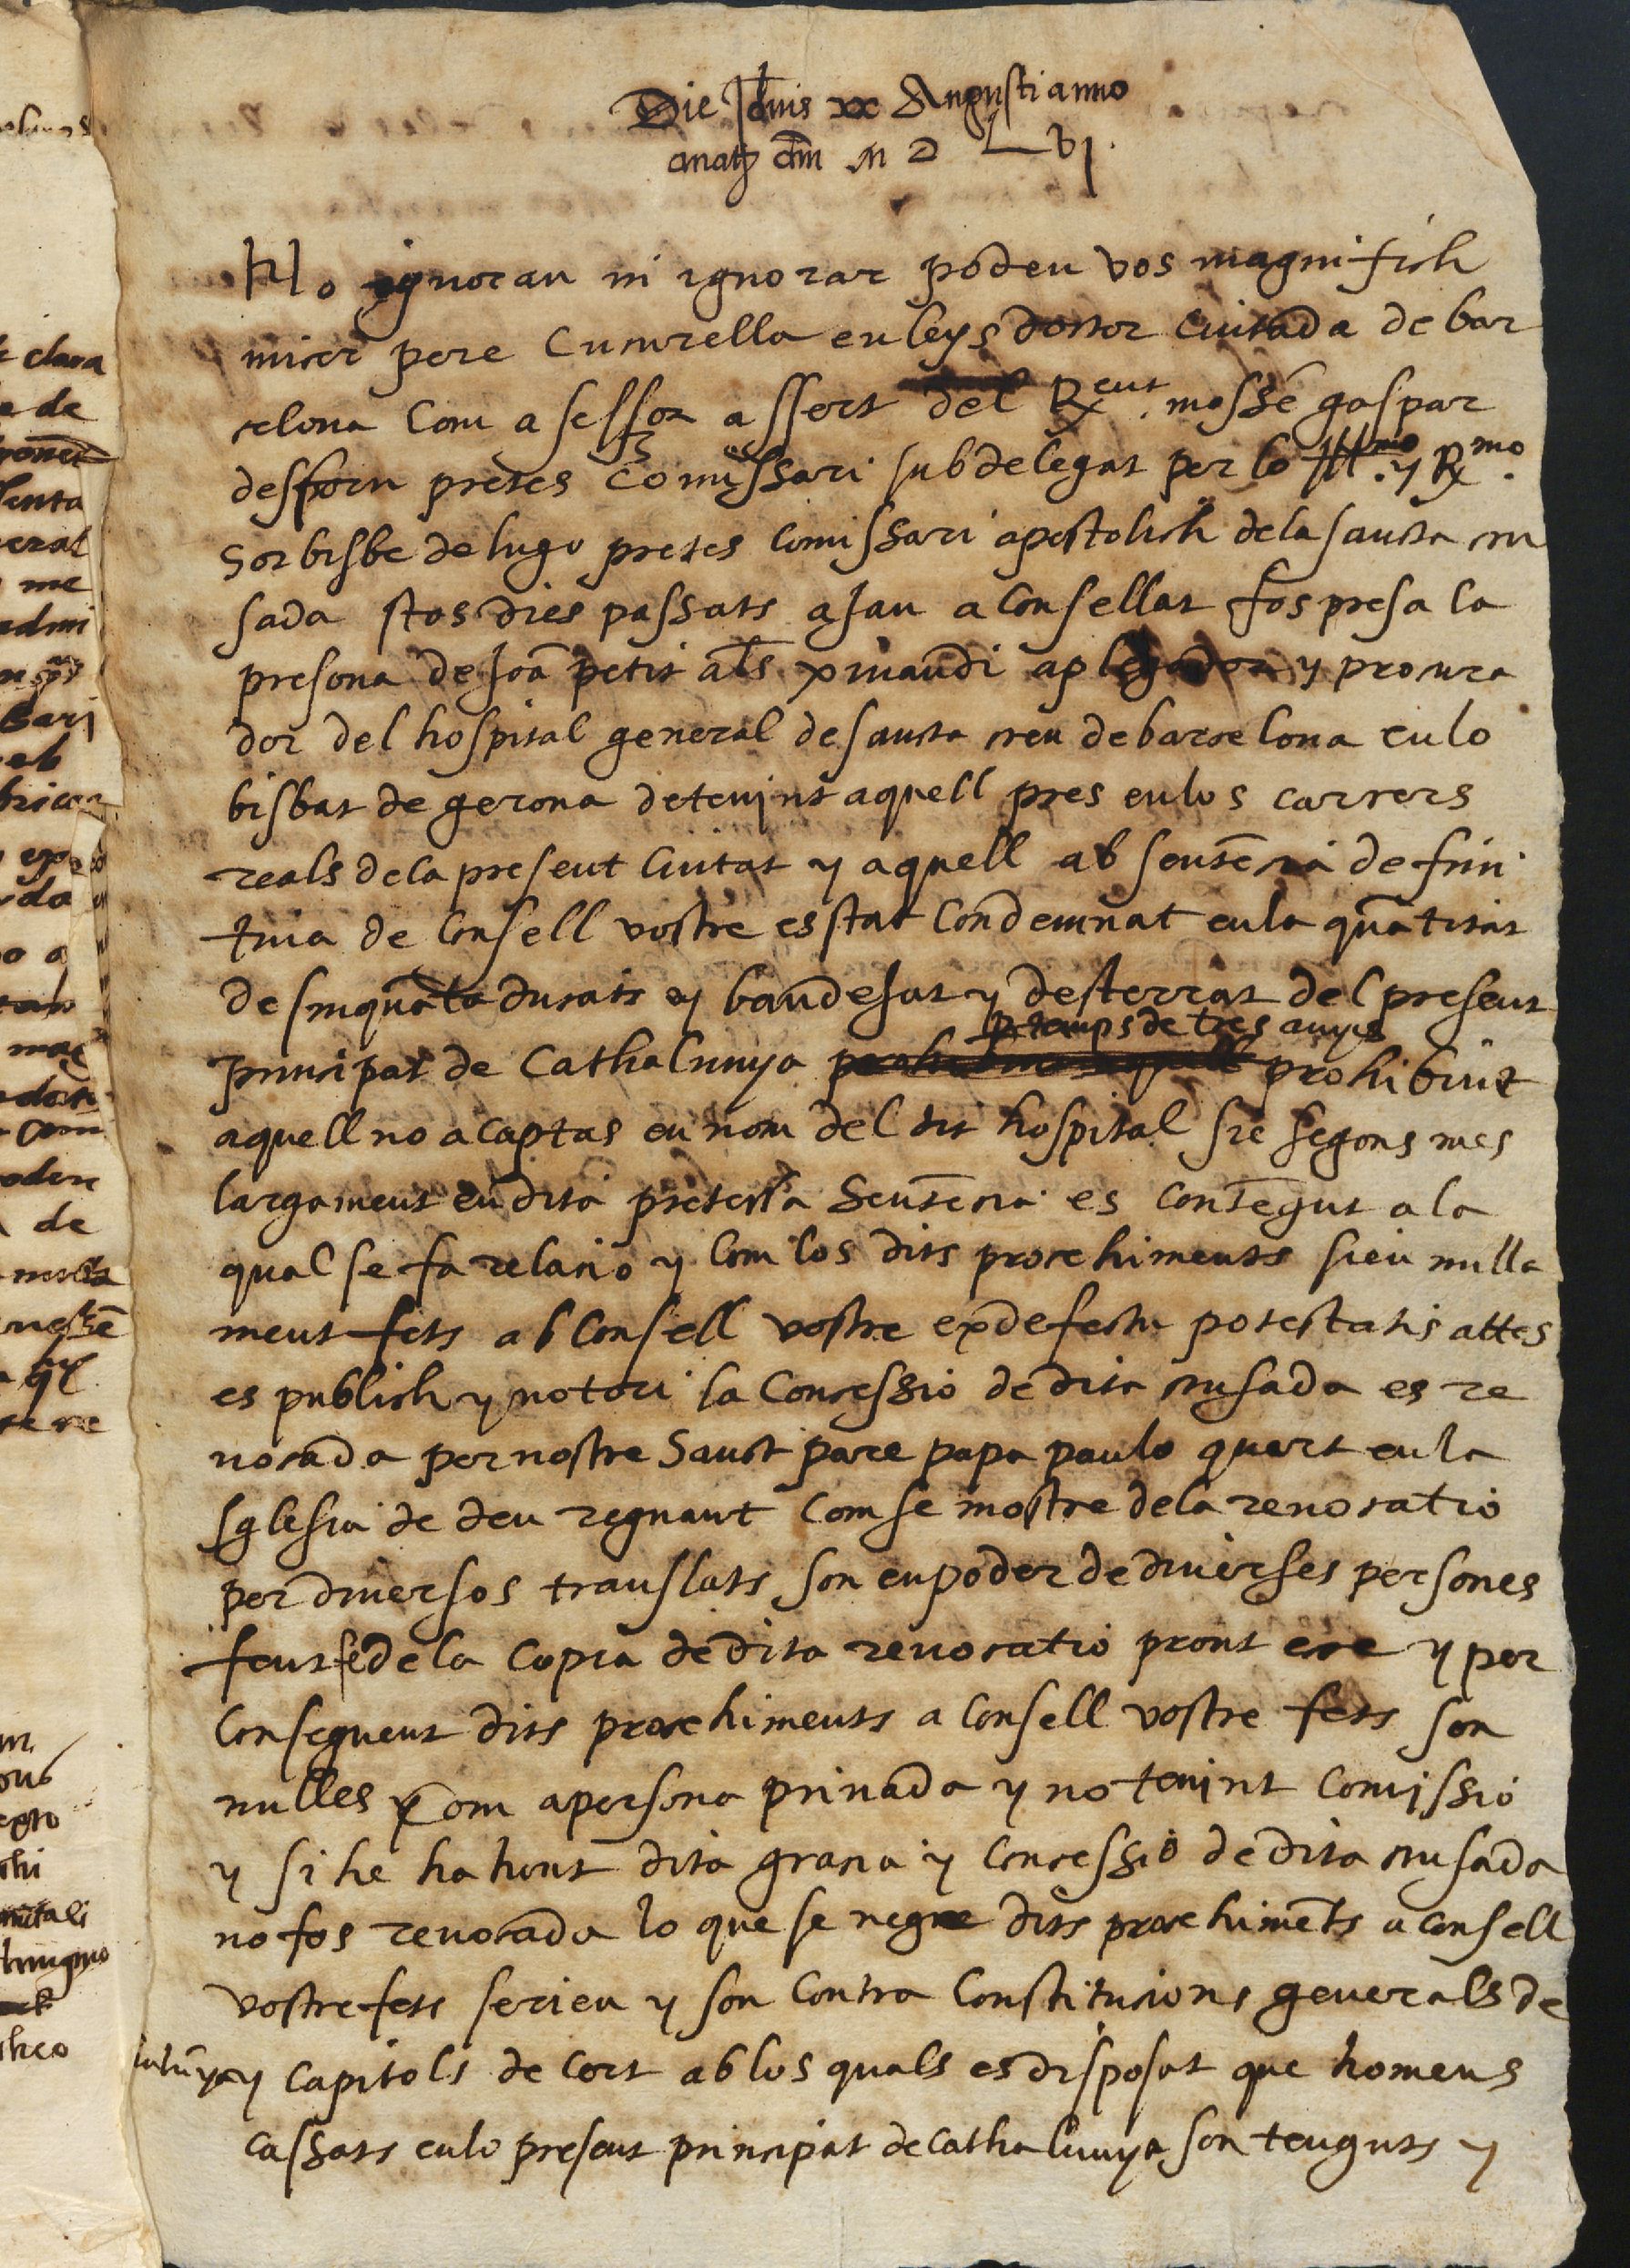 Die Jovis xx Augusti anno
a nat dni M D L vj.
No ignorau ni ignorar podeu vos magnifich
micer pere Cucurella en leys doctor Ciutada de bar
celona Com a sessor assert del Rt. mossè gaspar
desforn pretes Comissari subdelegat per lo Illmo. y Rmo.
Sor bisbe de lugo pretes Comissari apostolich de la sancta cru
sada stos dies passats aJau aConsellat fos presa la
presona de Joã petit als xpinandi aplegador y procura
dor del hospital general de sancta creu de barcelona en lo
bisbat de gerona detenint aquell pres en los carcers
reals de la present Ciutat y aquell ab sentẽcia deffini
tiua de Consell vostre es stat Condemnat en la quãtitat
de sinquãta ducats y bandeJat y desterrat del present
principat de Cathalunya p temps de tres anys prohibint
aquell no acaptas en nom del dit hospital sie segons mes
largament en dita pretesa Sentẽcia es Contẽgut a la
qual se fa relacio y Com los dits procehiments sien nulla
ment fets ab Consell vostre ex defectu potestatis attes
es publich y notori la Concessio de dita crusada es re
uocada per nostre Sanct pare papa paulo quart en la
Sglesia de deu regnant Com se mostre de la reuocatio
per diuersos translats son en poder de diuerses persones
fent fe de la Copia de dita reuocatio prout ecce y per
Consequent dits procehiments a Consell vostre fets son
nulles Com a persona priuada y no tenint Comissio
y si he hahunt dita gracia y Concessio de dita crusada
no fos reuocada lo que se negue dits procehimẽts a Consell
vostre fets serien y son Contra Constitucions generals de
y Capitols de Cort ab los quals es disposat que homens
Cassats en lo present principat de Cathalunya son tenguts y